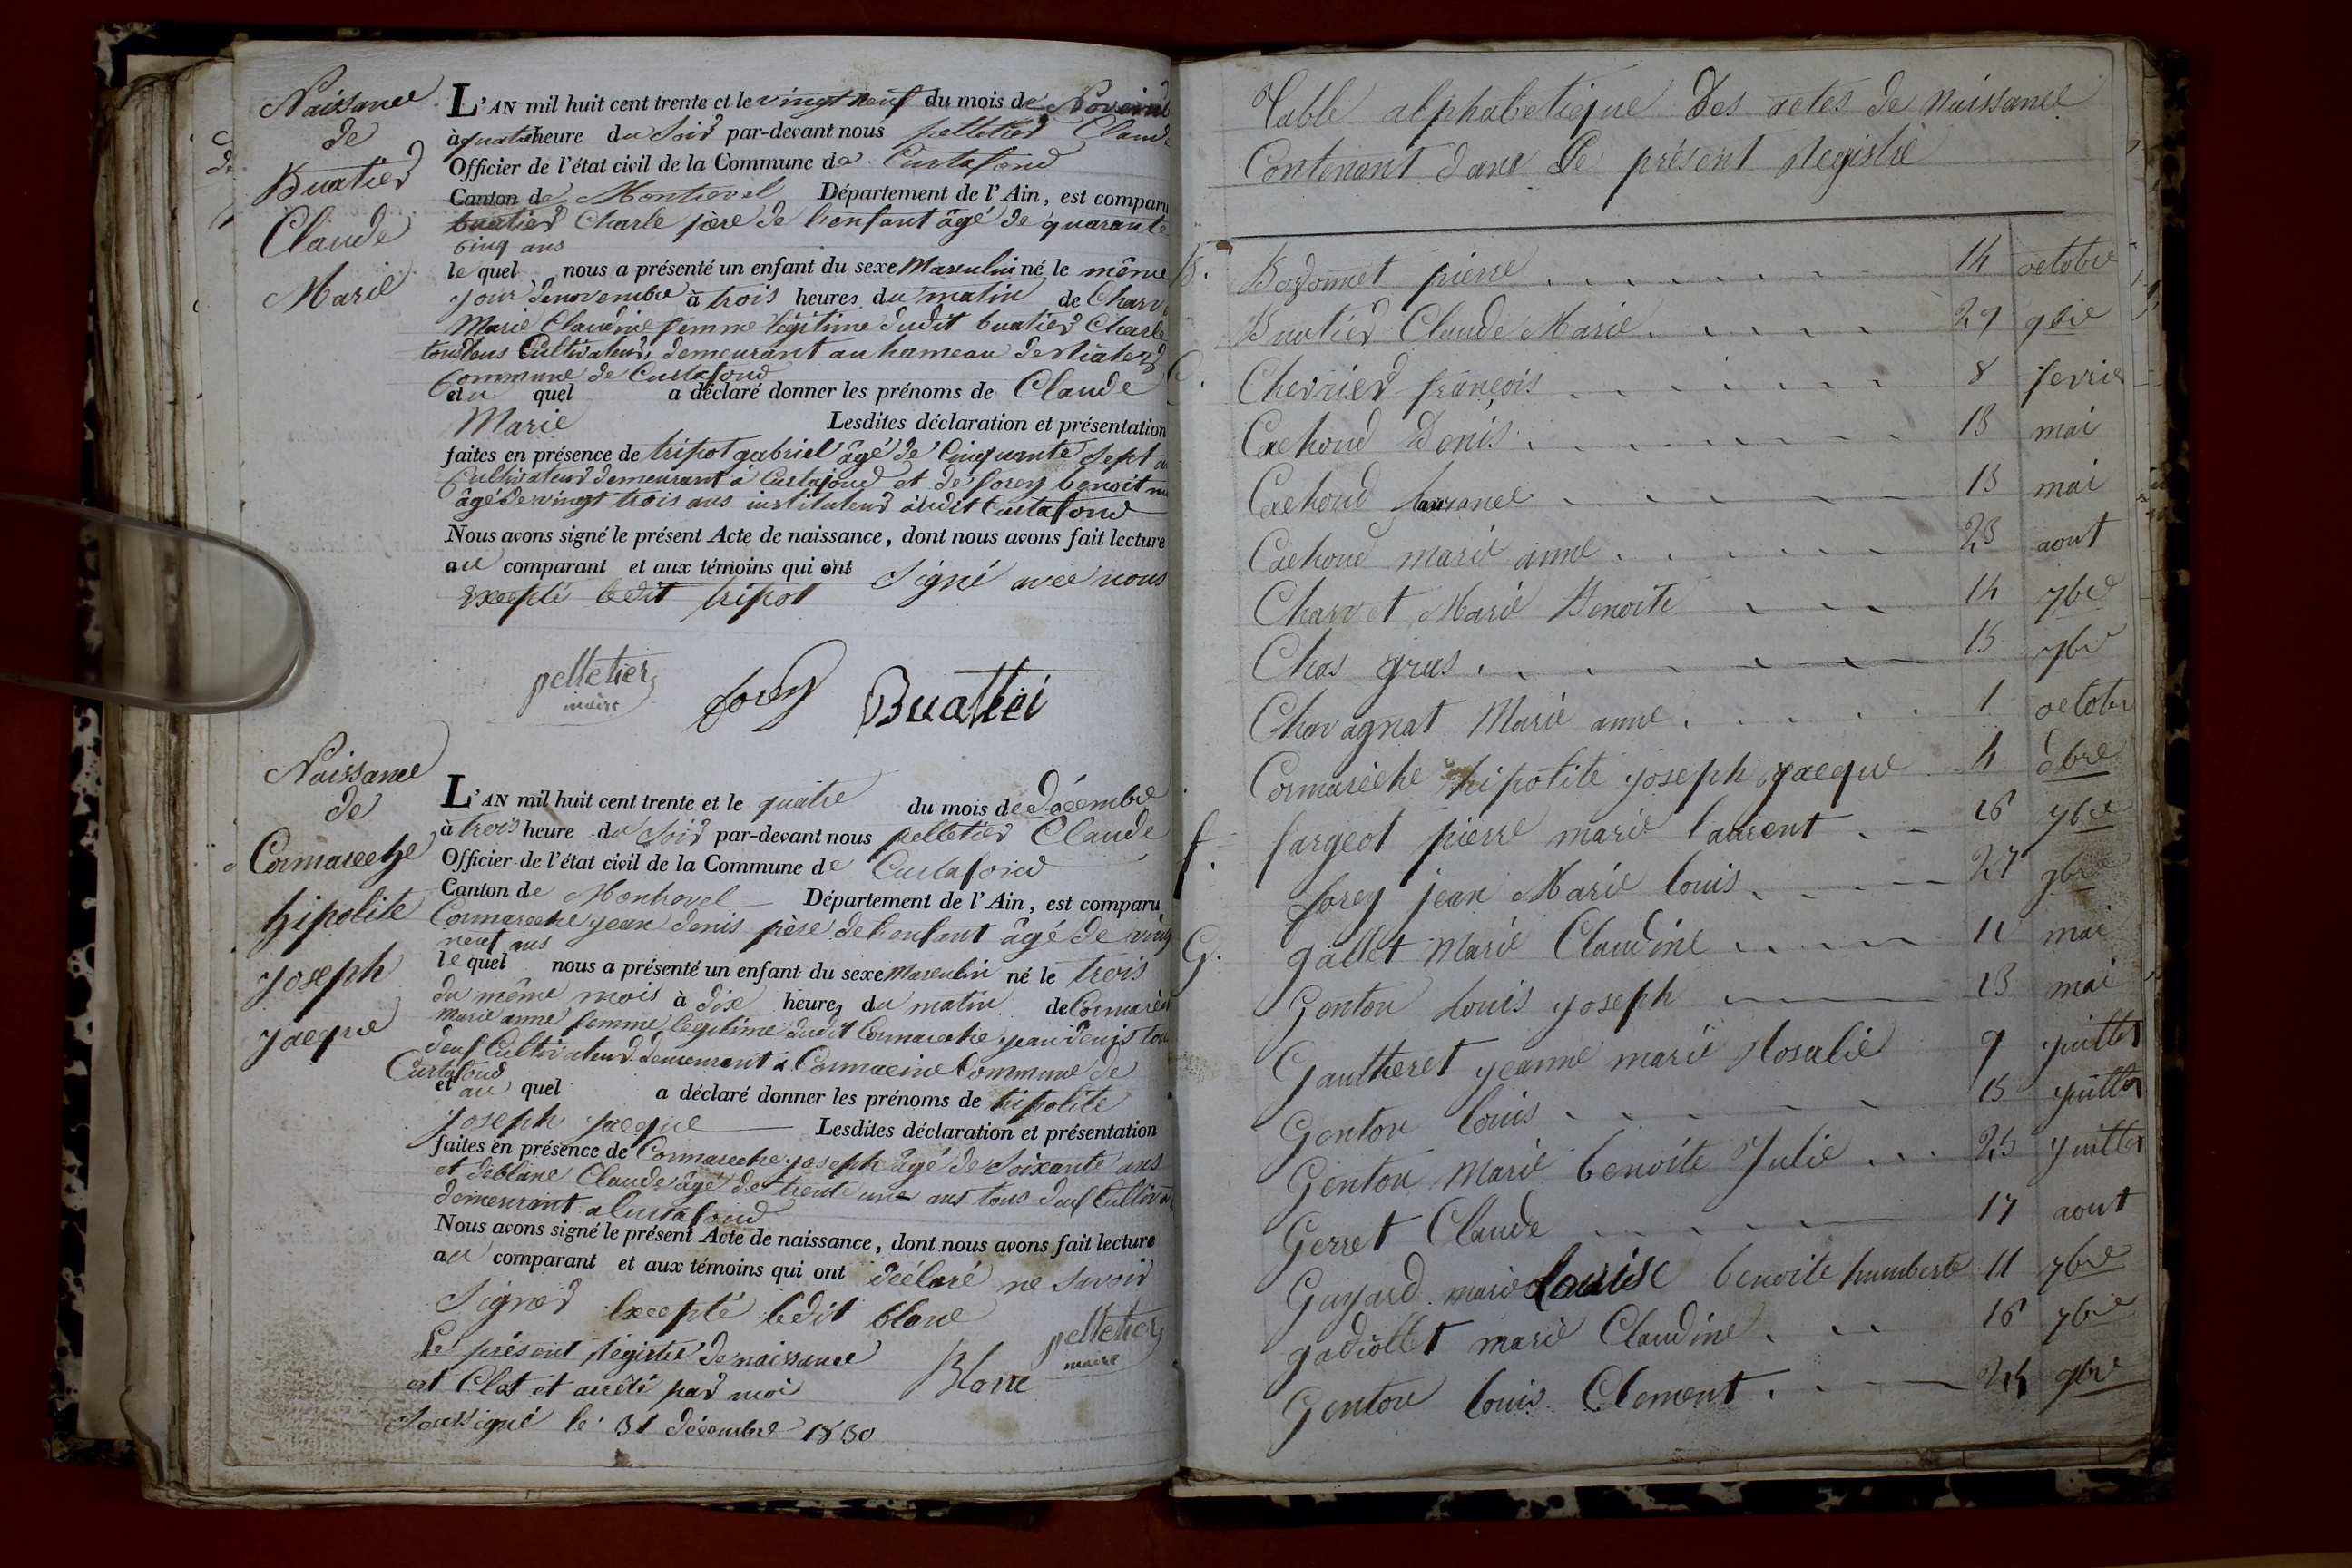 Naissance
de
Buatier
Claude
Marie
L'AN mil huit cent trente et le vingt neuf du mois de Novemb
à quatre heure du soir par-devant nous pelletier Claud
Officier de l'état civil de la Commune de Curtafond
Canton de Montrevel Département de l'Ain, est comparu
buatier Charle père de l'enfant âgé de quarante
cinq ans
le quel nous a présenté un enfant du sexe Masculin né le même
jour de novembre à trois heures du matin de Charv
Marie Claudine femme légitime dudit buatier Charle
tous deux Cultivateurs, demeurant au hameau de
Commune de Curtafond
et au quel a déclaré donner les prénoms de Claude
Marie Lesdites déclaration et présentation
faites en présence de tripot gabriel âgé de Cinquante sept a
Cultivateur demeurant à Curtafond et de forey benoit
âgé de vingt trois ans instituteur audit Curtafond
Nous avons signé le présent Acte de naissance, dont nous avons fait lecture
au comparant et aux témoins qui ont signé avec nous
Excepté ledit tripot
pelletier
maire
forey
Buattiei
Naissance
de
Cormareche
hipolite
joseph
jacque
L'AN mil huit cent trente et le quatre du mois de décembre
à trois heure du soir par-devant nous pelletier Claude
Officier de l'état civil de la Commune de Curtafond
Canton de Montrevel Département de l'Ain, est comparu
Cormareche jean denis père de l'enfant âgé de ving
neuf ans
le quel nous a présenté un enfant du sexe Masculin né le trois
du même mois à dix heures du matin de Cormarèch
marie anne femme légitime dudit Cormareche jean denis tou
deux Cultivateurs demeurant a Cormacine Commune de
Curtafond
et au quel a déclaré donner les prénoms de hipolite
joseph jacque Lesdites déclaration et présentation
faites en présence de Cormareche joseph âgé de soixante ans
et de blanc Claude âgé de trente un ans tous deux Cultivat
demeurant a Curtafond
Nous avons signé le présent Acte de naissance, dont nous avons fait lecture
au comparant et aux témoins qui ont déclaré ne savoir
signer Excepté ledit blanc
pelletier
maire
Blanc
Le présent Régistre de naissance
est Clot et arrêté par moi
soussigné le 31 décembre 1830
Table alphabetique des actes de Naissance
Contenant dans Le présent Registre
B. Bozonnet pierre 14 octobre
Buatier Claude Marie 29 9bre
C. Chevrier françois 8 fevrier
Cachoud Denis 13 mai
Cachoud 13 mai
Cachoud marie anne 23 aout
Charvet Marie Benoite 14 7bre
Chas grus 15 7bre
Chavagnat Marie anne 1 octobre
Cormarèche hipolite joseph jacque 4 dbre
f. fargeot pierre marie laurent 26 7bre
forey jean Marie louis 27 9bre
G. gallet Marie Claudine 11 mai
Genton Louis joseph 13 mai
Gautheret jeanne marie Rosalie 9 juillet
Genton louis 15 juillet
Genton Marie benoite Julie 25 juillet
Gerret Claude 17 aout
Guyard marie Louise benoite humberte 11 7bre
gadiollet marie Claudine 16 7bre
Genton louis Clement 24 9bre